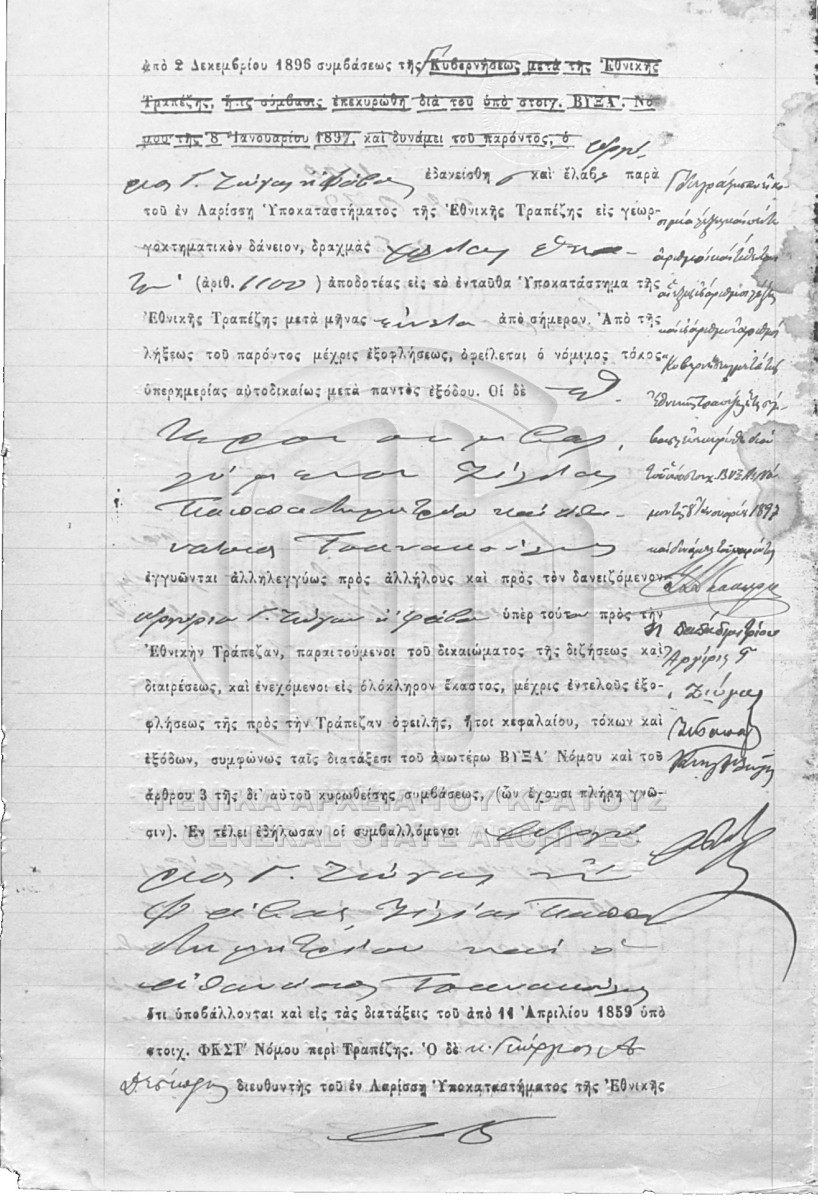 ἀπὸ 2 Δεκεμβρίου 1896 συμβάσεως τῆς Κυβερνήσεως μετὰ τῆς Ἐθνικῆς
Τραπέζης, ἥτις σύμβασις ἐπεκυρώθη διὰ τοῦ ὑπὸ στοιχ. ΒΥΞΑʹ. Νό-
μου τῆς 8 Ἰανουαρίου 1897, καὶ δυνάμει τοῦ παρόντος, ὁ Ἀργύ-
ριος Γ. Ζιώγας ἢ Φάβας ἐδανείσθη καὶ ἔλαβε παρὰ
τοῦ ἐν Λαρίσσῃ Ὑποκαταστήματος τῆς Ἐθνικῆς Τραπέζης εἰς γεωρ-
γοκτηματικὸν δάνειον, δραχμὰς χιλίας ἑκα-
τὸν (ἀριθ. 1100) ἀποδοτέας εἰς τὸ ἐνταῦθα Ὑποκατάστημα τῆς
Ἐθνικῆς Τραπέζης μετὰ μῆνας ἐννέα ἀπὸ σήμερον. Ἀπὸ τῆς
λήξεως τοῦ παρόντος μέχρις ἐξοφλήσεως, ὀφείλεται ὁ νόμιμος τόκος
ὑπερημερίας αὐτοδικαίως μετὰ παντὸς ἐξόδου. Οἱ δὲ
συμβαλ
λόμενοι Ἠλίας
Παπαδημητρίου καὶ Ἀθα-
νάσιος Τσανακούλης
ἐγγυῶνται ἀλληλεγγύως πρὸς ἀλλήλους καὶ πρὸς τὸν δανειζόμενον
Ἀργύριον Γ. Ζιώγαν ἢ Φάβαν ὑπὲρ τούτου πρὸς τὴν
Ἐθνικὴν Τράπεζαν, παραιτούμενοι τοῦ δικαιώματος τῆς διζήσεως καὶ
διαιρέσεως, καὶ ἐνεχόμενοι εἰς ὁλόκληρον ἕκαστος, μέχρις ἐντελοῦς ἐξο-
φλήσεως τῆς πρὸς τὴν Τράπεζαν ὀφειλῆς, ἤτοι κεφαλαίου, τόκων καὶ
ἐξόδων, συμφώνως ταῖς διατάξεσι τοῦ ἀνωτέρω ΒΥΞΑʹ Νόμου καὶ τοῦ
ἄρθρου 3 τῆς δι' αὐτοῦ κυρωθείσης συμβάσεως, (ὧν ἔχουσι πλήρη γνῶ-
σιν). Ἐν τέλει ἐδήλωσαν οἱ συμβαλλόμενοι Ἀργύ
ριος Γ. Ζιώγας ἢ
Φάβας Ἠλίας Παπα
δημητρίου καὶ ὁ
Ἀθανάσιος Τσανακούλης
ὅτι ὑποβάλλονται καὶ εἰς τὰς διατάξεις τοῦ ἀπὸ 11 Ἀπριλίου 1859 ὑπὸ
στοιχ. ΦΚΣΤʹ Νόμου περὶ Τραπέζης. Ὁ δὲ κ. Γεώργιος Α
διευθυντὴς τοῦ ἐν Λαρίσσῃ Ὑποκαταστήματος τῆς Ἐθνικῆς
Κυβερνήσεως μετὰ τῆς
Ἐθνικῆς Τραπέζης ἥτις σύμ-
βασις ἐπεκυρώθη διὰ
τοῦ ὑπὸ στοιχ. ΒΥΞΑ Νό
μου τῆς 8 Ἰανουαρίου 1897
καὶ δυνάμει τοῦ παρόντος
Η Παπαδημητρίου
Ἀργύρις Γ
Ζιώγας
ΓΕΝΙΚΑ ΑΡΧΕΙΑ ΤΟΥ ΚΡΑΤΟΥΣ
GENERAL STATE ARCHIVES